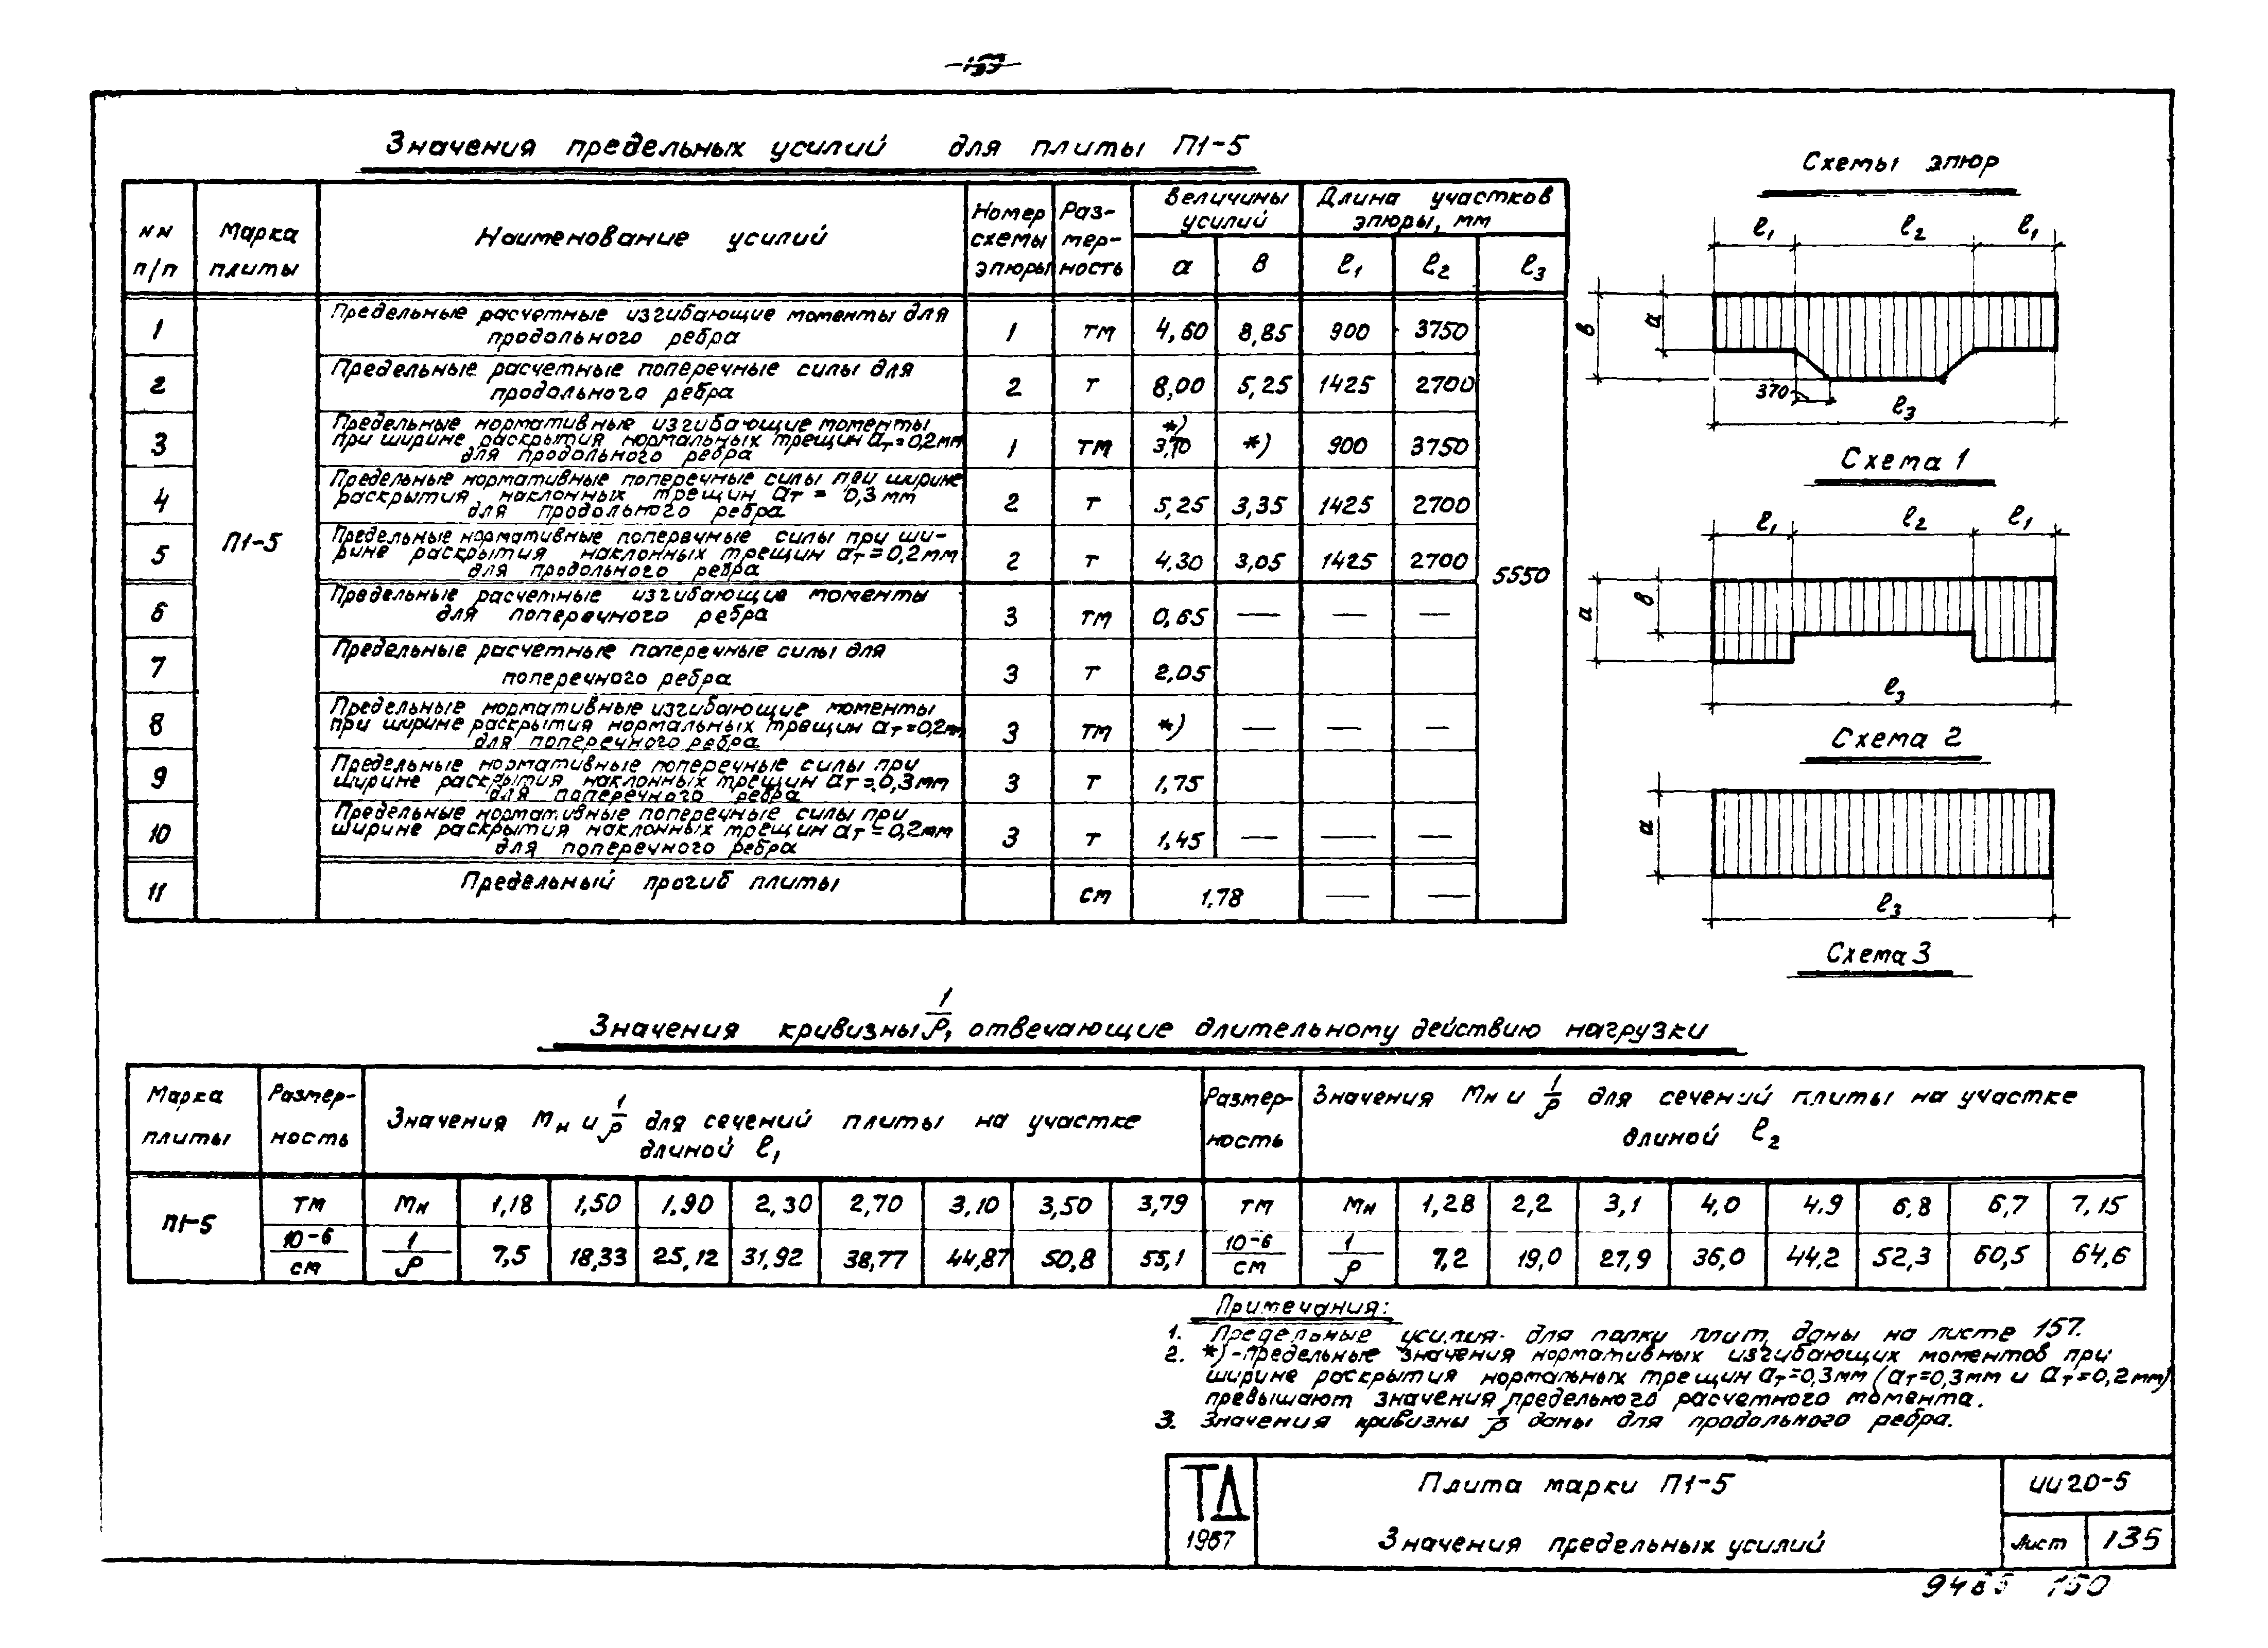 Значения предельных усилий для плиты П1-5
Схемы эпюр
нн п/п
Марка плиты
Наименование усилий
Номер схемы эпюры
Раз-мер-ность
Величины усилий
Длина участков эпюры, мм
а в l1 l2 l3
1 Предельные расчетные изгибающие моменты для продольного ребра 1 тм 4,60 8,85 900 3750
2 Предельные расчетные поперечные силы для продольного ребра 2 т 8,00 5,25 1425 2700
3 Предельные нормативные изгибающие моменты при ширине раскрытия нормальных трещин ат=0,2мм для продольного ребра 1 тм *) 3,70 *) 900 3750
4 Предельные нормативные поперечные силы при ширине раскрытия наклонных трещин ат = 0,3 мм для продольного ребра 2 т 5,25 3,35 1425 2700
П1-5
5 Предельные нормативные поперечные силы при ши-рине раскрытия наклонных трещин ат=0,2мм для продольного ребра 2 т 4,30 3,05 1425 2700
5550
6 Предельные расчетные изгибающие моменты для поперечного ребра 3 тм 0,65 — — —
7 Предельные расчетные поперечные силы для поперечного ребра 3 т 2,05
8 Предельные нормативные изгибающие моменты при ширине раскрытия нормальных трещин ат=0,2м для поперечного ребра 3 тм *) — — —
9 Предельные нормативные поперечные силы при ширине раскрытия наклонных трещин ат=0,3мм для поперечного ребра 3 т 1,75
10 Предельные нормативные поперечные силы при ширине раскрытия наклонных трещин ат=0,2мм для поперечного ребра 3 т 1,45 — — —
11 Предельный прогиб плиты см 1,78 — —
l1 l2 l1
в а
370
l3
Схема 1
l1 l2 l1
а в
l3
Схема 2
а
l3
Схема 3
Значения кривизны 1/ρ, отвечающие длительному действию нагрузки
Марка плиты
Размер-ность
Значения Мн и 1/ρ для сечений плиты на участке длиной l1
Размер-ность
Значения Мн и 1/ρ для сечений плиты на участке длиной l2
П1-5
тм Мн 1,18 1,50 1,90 2,30 2,70 3,10 3,50 3,79 тм Мн 1,28 2,2 3,1 4,0 4,9 6,8 6,7 7,15
10-6/см 1/ρ 7,5 18,33 25,12 31,92 38,77 44,87 50,8 55,1 10-6/см 1/ρ 7,2 19,0 27,9 36,0 44,2 52,3 60,5 64,6
Примечания:
1. Предельные усилия для полки плит даны на листе 157.
2. *)-предельные значения нормативных изгибающих моментов при
ширине раскрытия нормальных трещин ат=0,3мм (ат=0,3мм и ат=0,2мм)
превышают значения предельного расчетного момента.
3. Значения кривизны 1/ρ даны для продольного ребра.
ТД
1967
Плита марки П1-5
Значения предельных усилий
ИИ20-5
Лист 135
9485 150